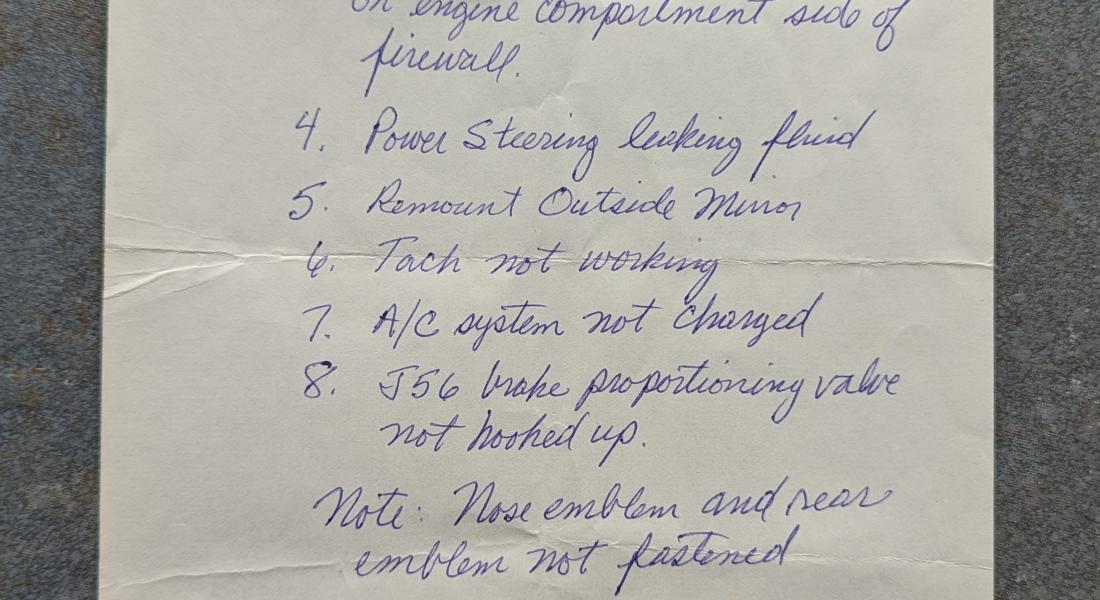 on engine compartment side of
firewall.
4. Power Steering leaking fluid
5. Remount Outside Mirror
6. Tach not working
7. A/C system not charged
8. J56 brake proportioning valve
not hooked up.
Note: Nose emblem and rear
emblem not fastened